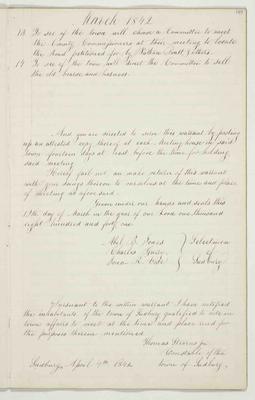 March 1842
18 To see if the town will choose a Committee to meet
the County Commissioners at their meeting to locate
the Road petitioned for by Nathan & others.
19 To see if the town will direct the Committee to sell
the old hearse and harness.
And you are directed to serve this warrant by posting
up an attested copy thereof at each Meeting house in said
town fourteen days at least before the time for holding
said meeting
Hereof fail not an make return of this warrant
with your doings thereon to ourselves at the time and place
of meeting as aforesaid.
Given under our hands and seals this
19th day of March in the year of our Lord one thousand
eight hundred and forty one.
Abel B. Jones
Charles Gerry
Selectmen
of
Sudbury
Pursuant to the within warrant I have notified
the inhabitants of the town of Sudbury qualified to vote in
town affairs to meet at the time and place and for
the purposes therein mentioned
Thomas Stearns Jr
Constable of the
Sudbury April 4th 1842 town of Sudbury.